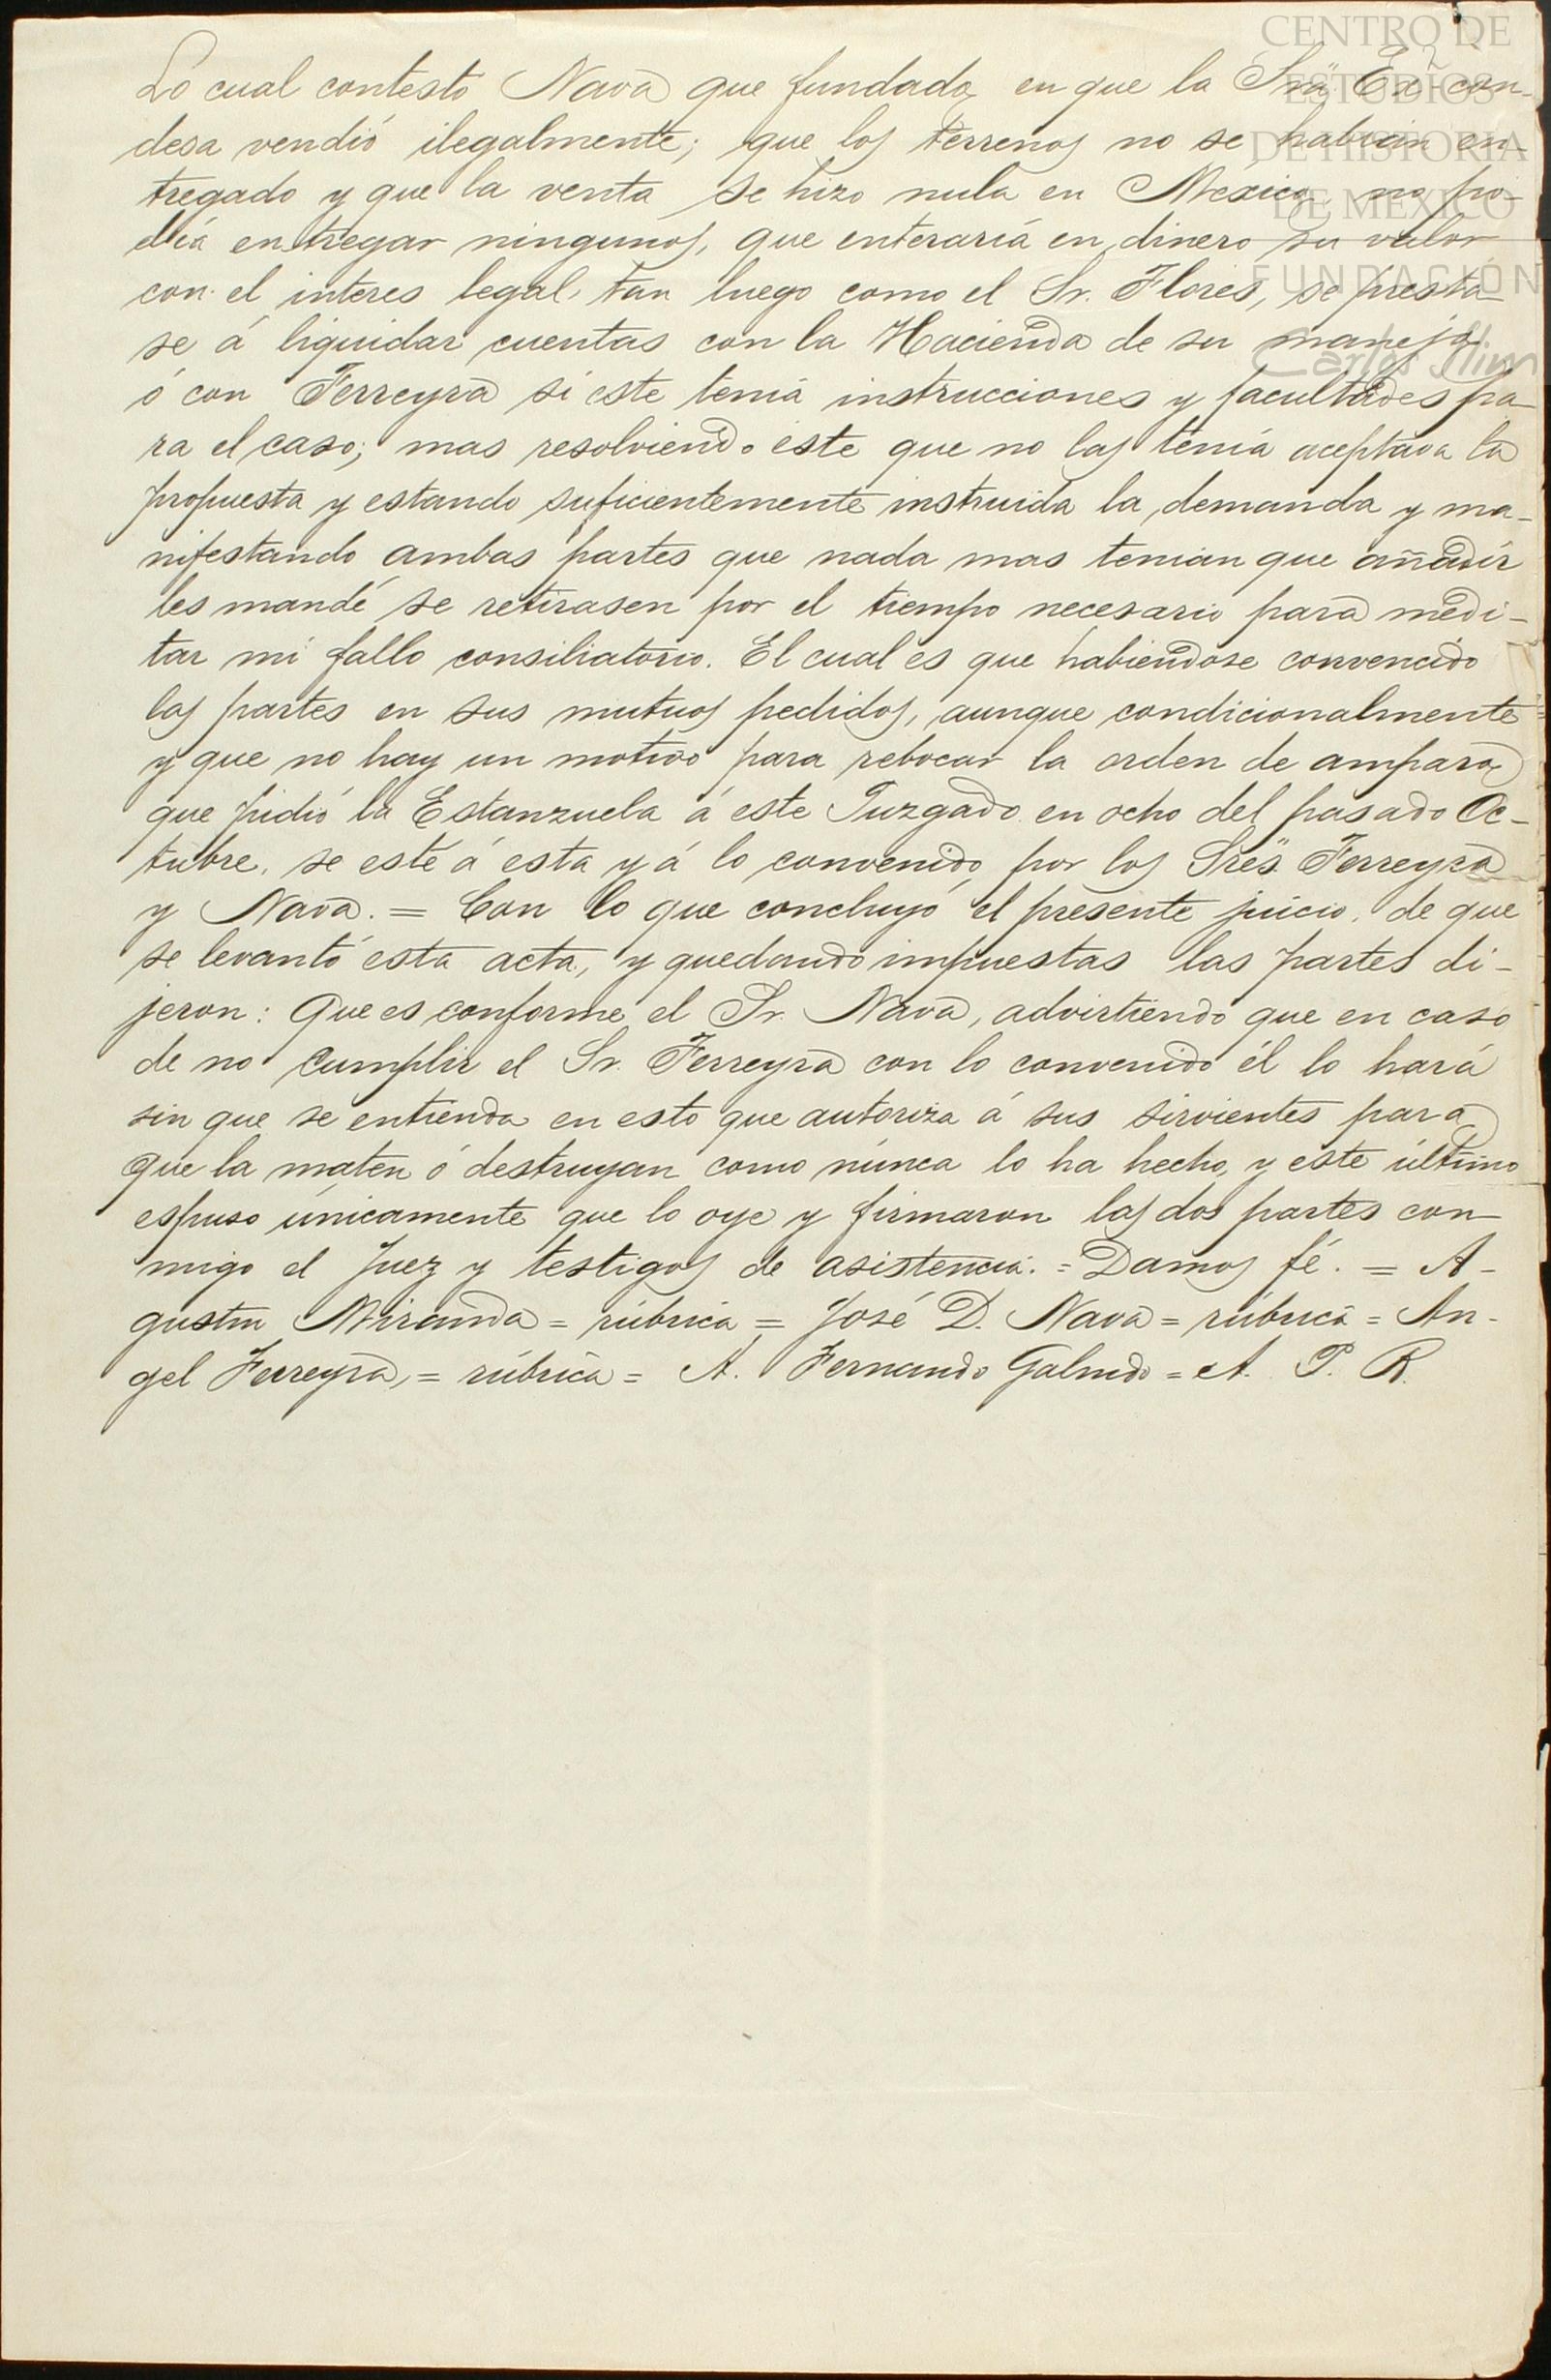 CENTRO DE
ESTUDIOS
DE HISTORIA
DE MEXICO
FUNDACIÓN
Carlos Slim
Lo cual contestó Nava que fundado en que la Sra. Ex-con-
desa vendió ilegalmente; que los terrenos no se habían en-
tregado y que la venta se hizo nula en México no po-
día entregar ningunos, que enteraría en dinero su valor
con el interes legal, tan luego como el Sr. Flores, se presta-
se á liquidar cuentas con la Hacienda de su manejo
ó con Ferreyra si este tenia instrucciones y facultades pa-
ra el caso; mas resolviendo este que no las tenía aceptava la
propuesta y estando suficientemente instruida la demanda y ma-
nifestando ambas partes que nada mas tenian que añadir
les mandé se retirasen por el tiempo necesario para medi-
tar mi fallo consiliatorio. El cual es que habiendose convencido
las partes en sus mutuos pedidos, aunque condicionalmente
y que no hay un motivo para rebocar la orden de amparo
que pidió la Estanzuela á este Juzgado en ocho del pasado Oc-
tubre, se esté á esta y á lo convenido por los Sres. Ferreyra
y Nava. = Con lo que concluyó el presente juicio, de que
se levantó esta acta, y quedando impuestas las partes di-
jeron: Que es conforme el Sr. Nava, advirtiendo que en caso
de no cumplir el Sr. Ferreyra con lo convenido él lo hará
sin que se entienda en esto que autoriza á sus sirvientes para
que la maten ó destruyan como núnca lo ha hecho, y este último
espuso únicamente que lo oye y firmaron las dos partes con-
migo el Juez y testigos de asistencia. = Damos fé. = A-
gustin Miranda = rúbrica = José D. Nava = rúbrica = An-
gel Ferreyra, = rúbrica = A. Fernando Galindo = A. P. R.